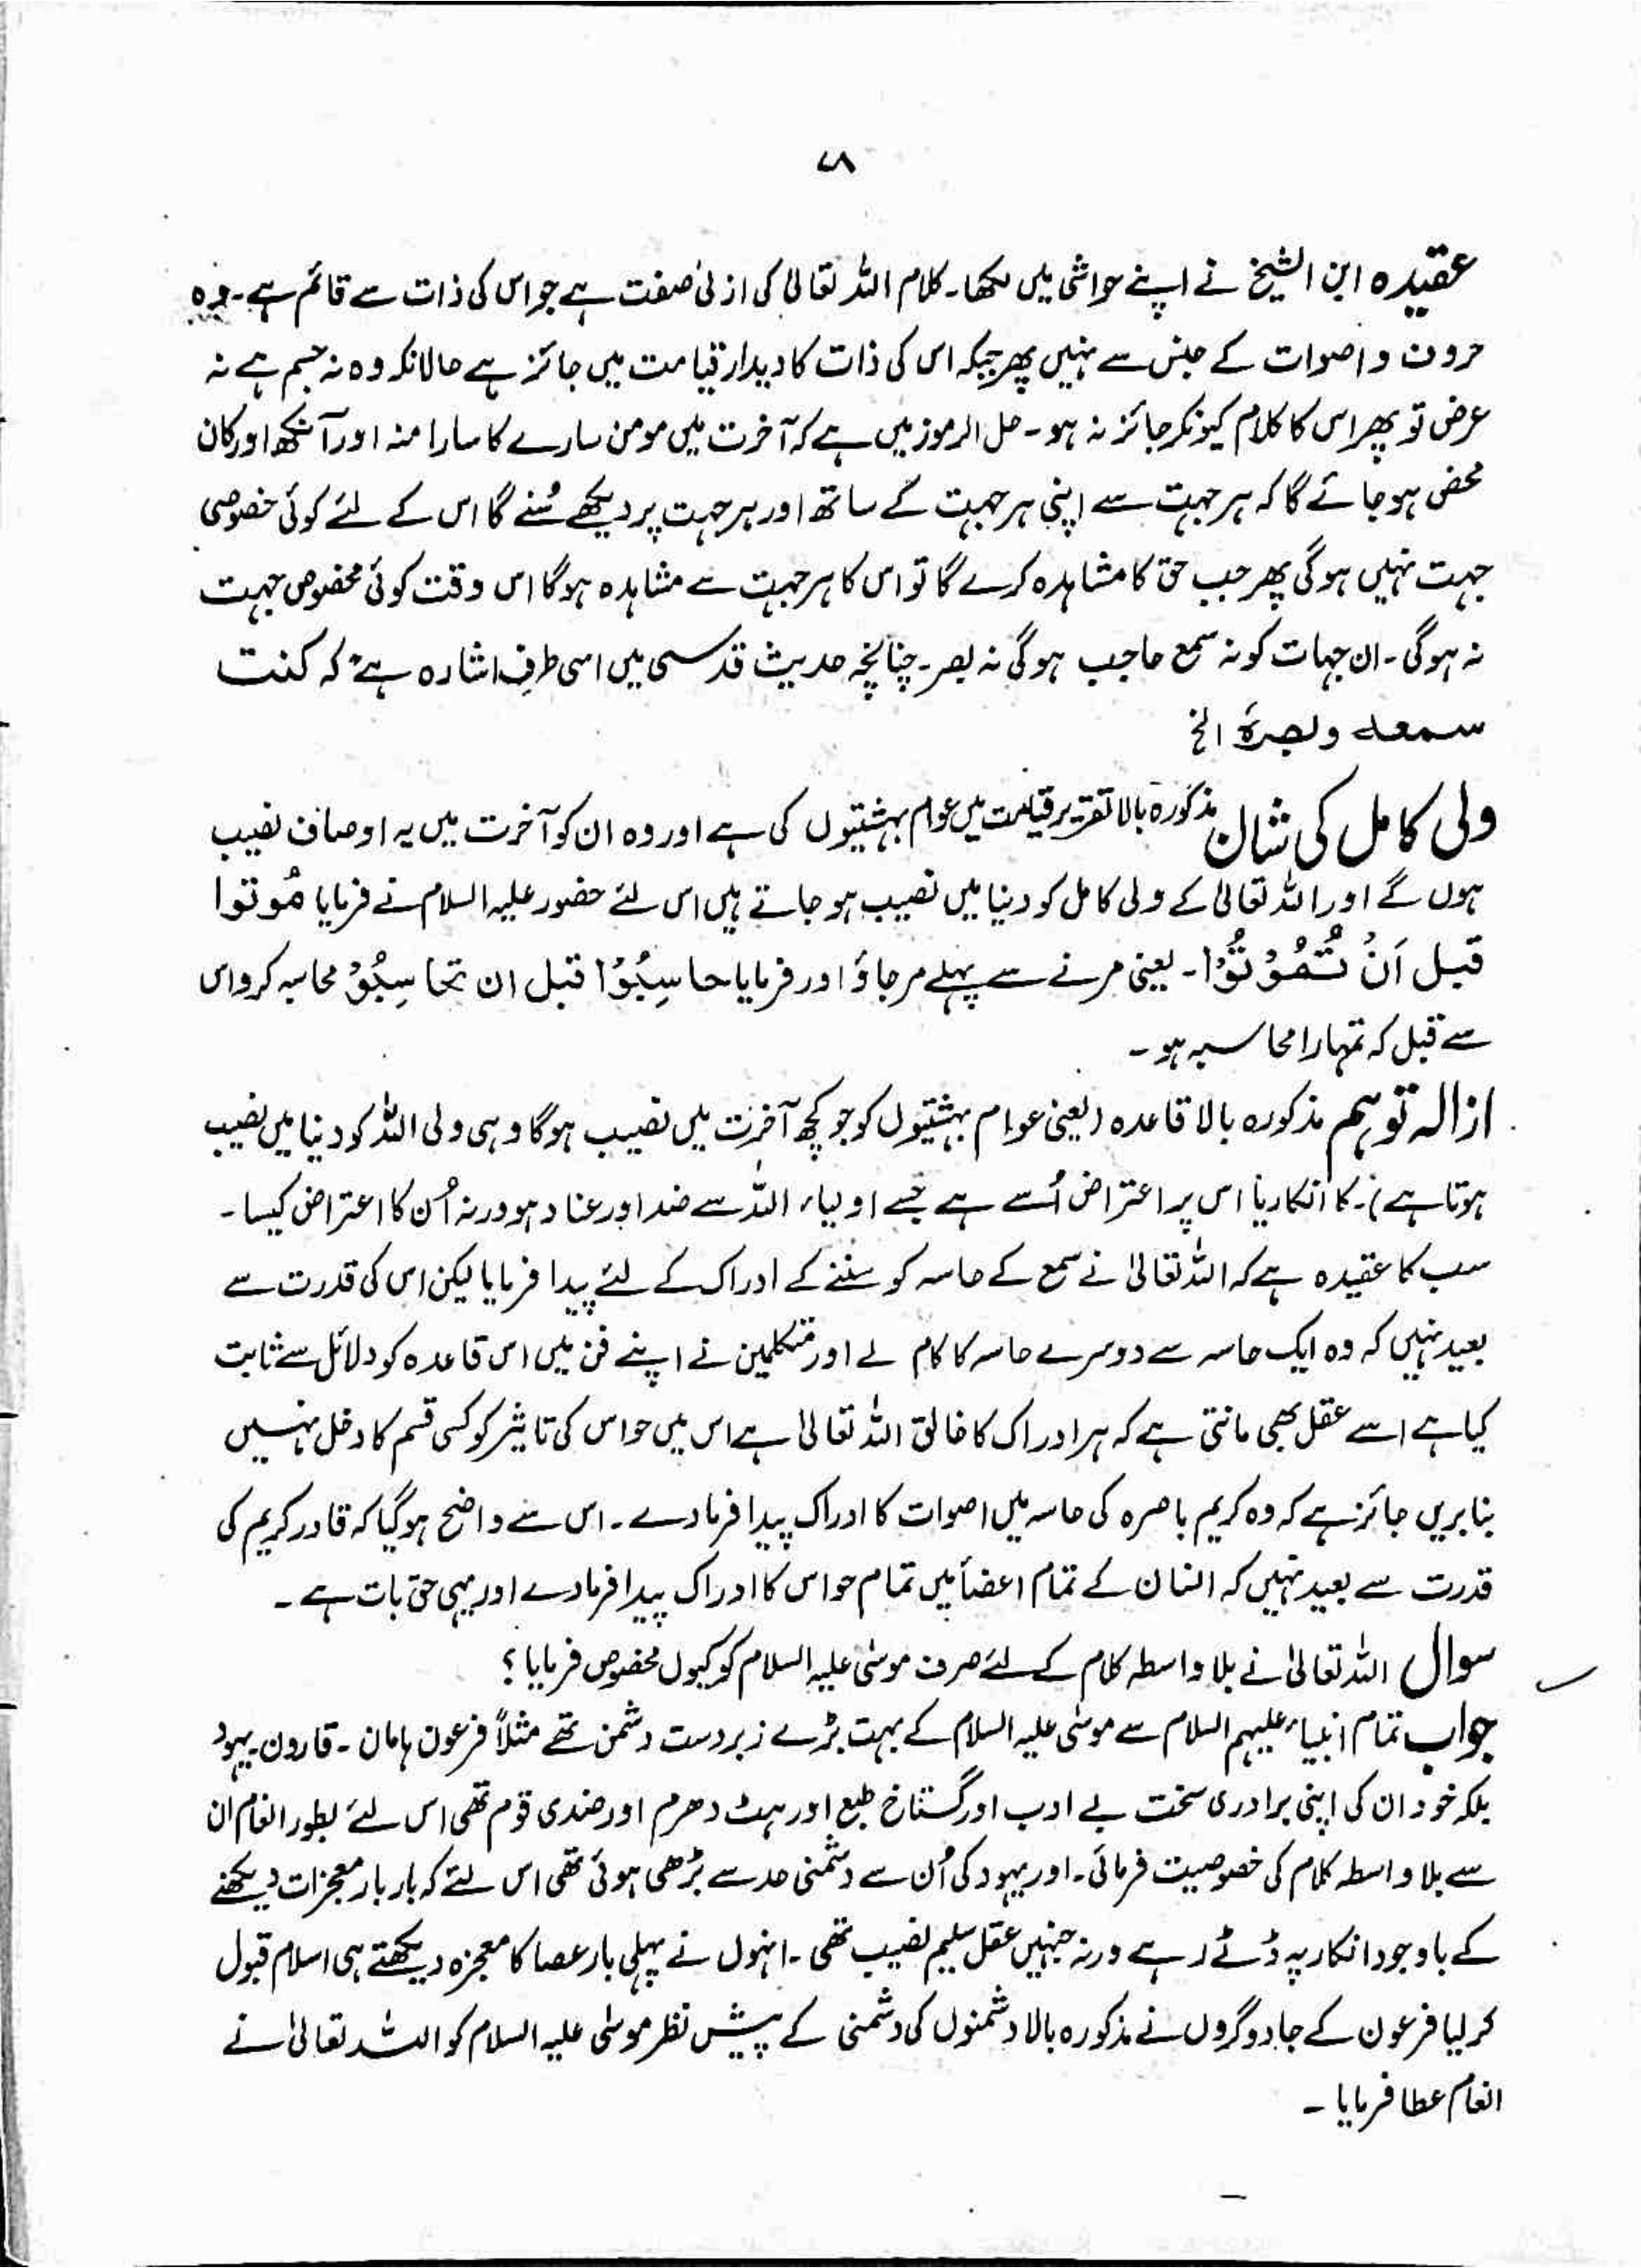 ۷۸
عقیدہ ابن الشیخ نے اپنے حواشی میں لکھا۔ کلام اللہ تعالیٰ کی ازلی صفت ہے جو اس کی ذات سے قائم ہے۔ وہ
حروف و اصوات کے جنس سے نہیں پھر جبکہ اس کی ذات کا دیدار قیامت میں جائز ہے حالانکہ وہ نہ جسم ہے نہ
عرض تو پھر اس کا کلام کیونکر جائز نہ ہو۔ حل الرموز میں ہے کہ آخرت میں مومن سارے کا سارا منہ اور آنکھ اور کان
محض ہو جائے گا کہ ہر جہت سے اپنی ہر جہت کے ساتھ اور ہر جہت پر دیکھے سُنے گا اس کے لئے کوئی خصوصی
جہت نہیں ہوگی پھر جب حق کا مشاہدہ کرے گا تو اس کا ہر جہت سے مشاہدہ ہوگا اس وقت کوئی مخصوص جہت
نہ ہوگی۔ ان جہات کو نہ سمع حاجب ہوگی نہ بصر۔ چنانچہ حدیث قدسی میں اسی طرف اشارہ ہے کہ کنت
سمعہ وبصرہٗ الخ
ولی کامل کی شان مذکورہ بالا تقریر قیامت میں عوام بہشتیوں کی ہے اور وہ ان کو آخرت میں یہ اوصاف نصیب
ہوں گے اور اللہ تعالیٰ کے ولی کامل کو دنیا میں نصیب ہو جاتے ہیں اس لئے حضور علیہ السلام نے فرمایا مُوتوا
قبل اَنْ تُمُوْتُوْا۔ یعنی مرنے سے پہلے مر جاؤ اور فرمایا حاسِبُوْا قبل ان تحاسِبُوْ محاسبہ کرو اس
سے قبل کہ تمہارا محاسبہ ہو۔
ازالہ توہم مذکورہ بالا قاعدہ (یعنی عوام بہشتیوں کو جو کچھ آخرت میں نصیب ہوگا وہی ولی اللہ کو دنیا میں نصیب
ہوتا ہے)۔ کا انکار یا اس پر اعتراض اُسے ہے جسے اولیاء اللہ سے ضد اور عناد ہو ورنہ اُن کا اعتراض کیسا۔
سب کا عقیدہ ہے کہ اللہ تعالیٰ نے سمع کے حاسہ کو سننے کے ادراک کے لئے پیدا فرمایا لیکن اس کی قدرت سے
بعید نہیں کہ وہ ایک حاسہ سے دوسرے حاسہ کا کام لے اور متکلمین نے اپنے فن میں اس قاعدہ کو دلائل سے ثابت
کیا ہے اسے عقل بھی مانتی ہے کہ ہر ادراک کا خالق اللہ تعالیٰ ہے اس میں حواس کی تاثیر کو کسی قسم کا دخل نہیں
بنابریں جائز ہے کہ وہ کریم باصرہ کی حاسہ میں اصوات کا ادراک پیدا فرما دے۔ اس سے واضح ہوگیا کہ قادر کریم کی
قدرت سے بعید نہیں کہ انسان کے تمام اعضأ میں تمام حواس کا ادراک پیدا فرما دے اور یہی حق بات ہے۔
سوال اللہ تعالیٰ نے بلا واسطہ کلام کے لئے صرف موسیٰ علیہ السلام کو کیوں مخصوص فرمایا؟
جواب تمام انبیاء علیہم السلام سے موسیٰ علیہ السلام کے بہت بڑے زبردست دشمن تھے مثلاً فرعون ہامان۔ قارون۔ یہود
بلکہ خود ان کی اپنی برادری سخت بے ادب اور گستاخ طبع اور ہٹ دھرم اور ضدی قوم تھی اس لئے بطور انعام ان
سے بلا واسطہ کلام کی خصوصیت فرمائی۔ اور یہود کی اُن سے دشمنی حد سے بڑھی ہوئی تھی اس لئے کہ بار بار معجزات دیکھنے
کے باوجود انکار پہ ڈٹے رہے ورنہ جنہیں عقل سلیم نصیب تھی۔ انہوں نے پہلی بار عصا کا معجزہ دیکھتے ہی اسلام قبول
کر لیا فرعون کے جادوگروں نے مذکورہ بالا دشمنوں کی دشمنی کے پیش نظر موسیٰ علیہ السلام کو اللہ تعالیٰ نے
انعام عطا فرمایا۔